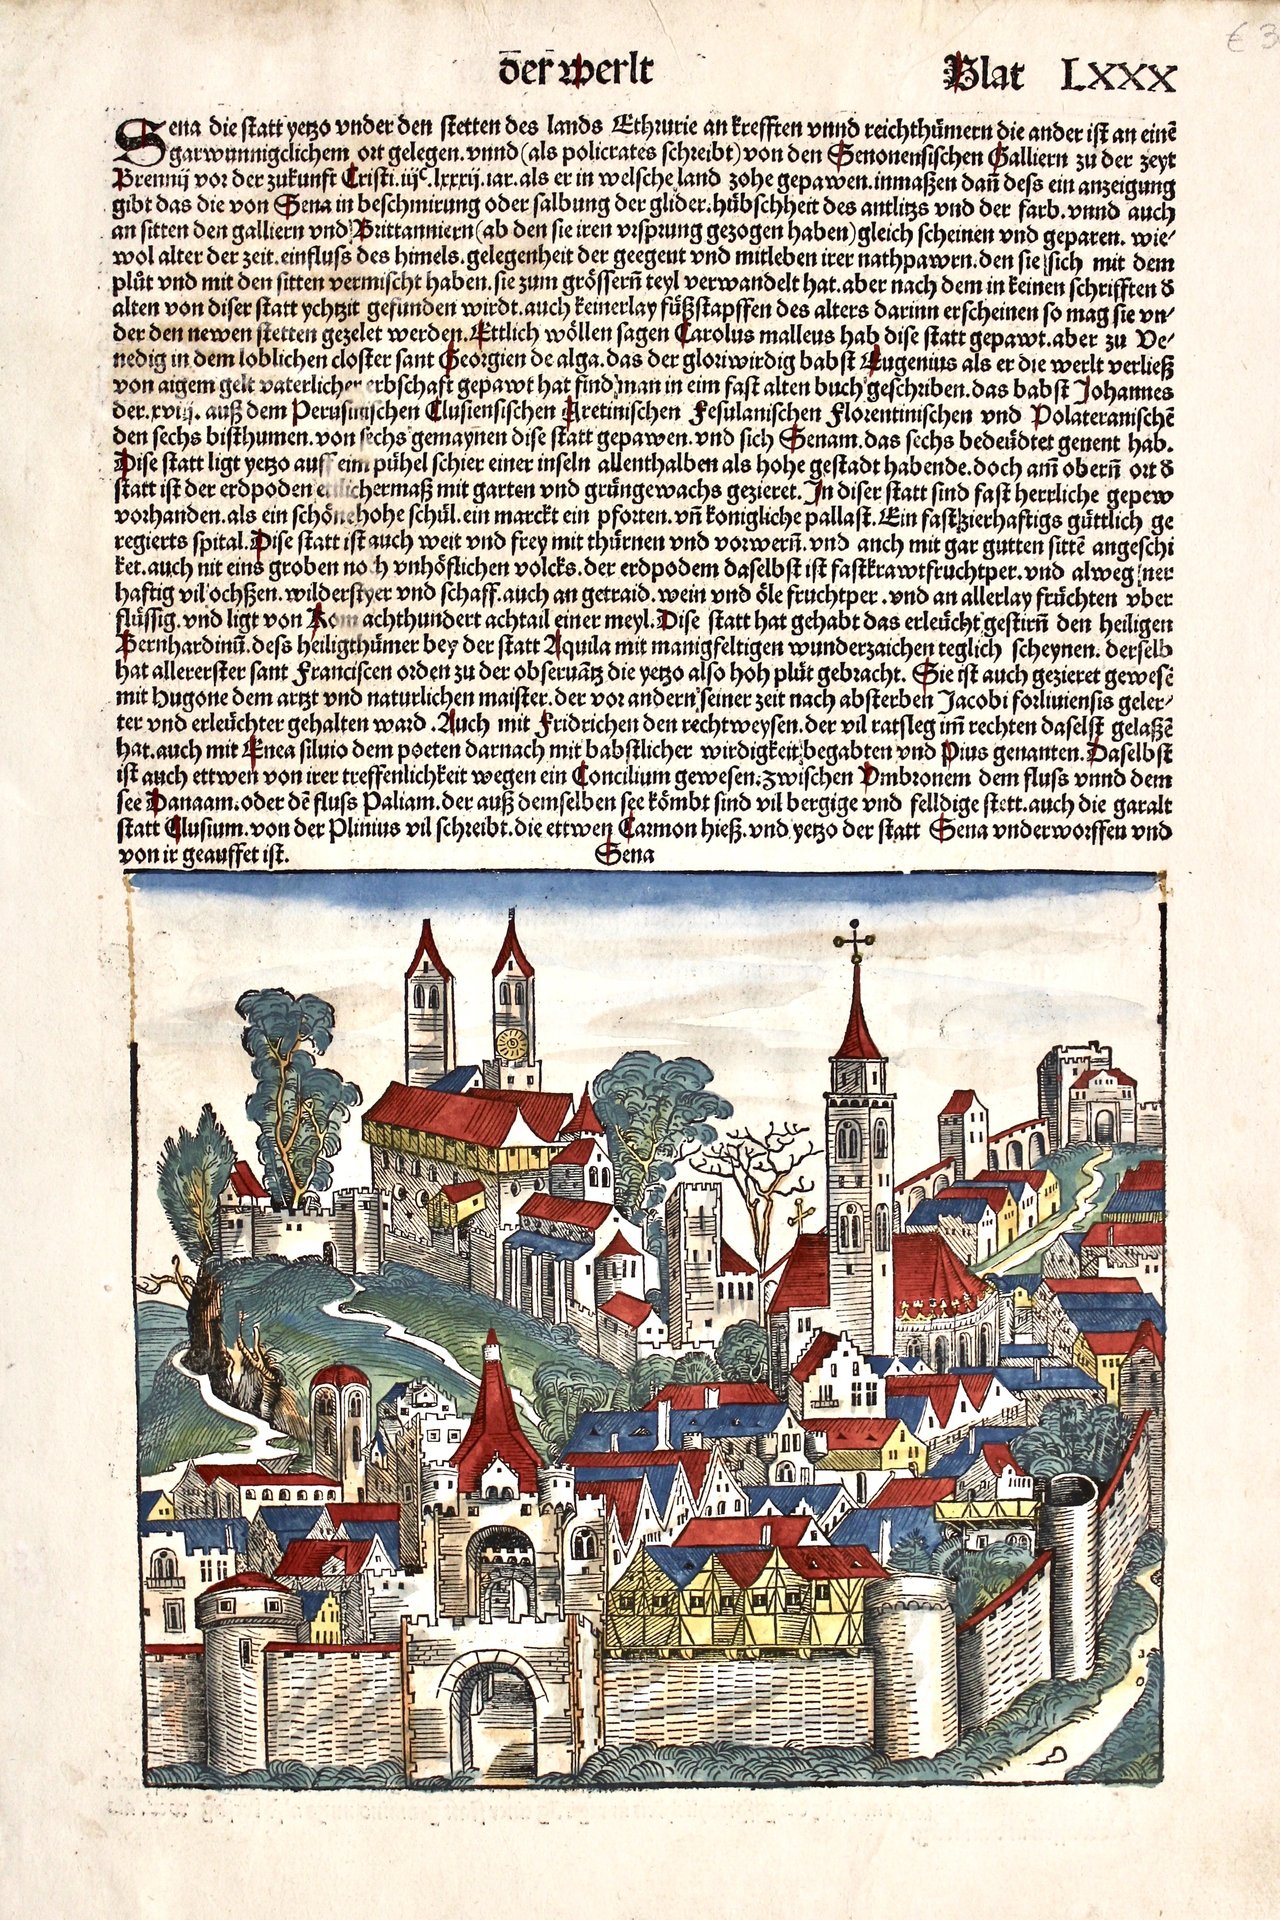 der werlt
Blat LXXX
Sena die statt yetzo vnder den stetten des lands Ethrurie an krefften vnnd reichthümern die ander ist an einē
gar wunnigclichem ort gelegen. vnnd (als policrates schreibt) von den Senonensischen Galliern zu der zeyt
Brennij vor der zukunft Cristi. iijᶜ. lxxxij. iar. als er in welsche land zohe gepawen. inmaßen dañ dess ein anzeigung
gibt das die von Sena in beschmirung oder salbung der glider. hübschheit des antlitzs vnd der farb. vnnd auch
an sitten den galliern vnd Brittanniern (ab den sie iren vrsprung gezogen haben) gleich scheinen vnd geparen. wie⸗
wol alter der zeit. einfluss des himels. gelegenheit der geegent vnd mitleben irer nathpawrn. den sie sich mit dem
plůt vnd mit den sitten vermischt haben. sie zum grössern teyl verwandelt hat. aber nach dem in keinen schrifften d
alten von diser statt ychtzit gefunden wirdt. auch keinerlay fůßstapffen des alters darinn erscheinen so mag sie vn⸗
der den newen stetten gezelet werden. Ettlich wöllen sagen Carolus malleus hab dise statt gepawt. aber zu Ve⸗
nedig in dem loblichen closter sant Georgien de alga. das der gloriwirdig babst Eugenius als er die werlt verließ
von aigem gelt vaterlicher erbschaft gepawt hat find man in eim fast alten buch geschriben. das babst Johannes
der. xviij. auß dem Perusinischen Clusiensischen Aretinischen Fesulanischen Florentinischen vnd Volateranischē
den sechs bisthumen. von sechs gemaynen dise statt gepawen. vnd sich Senam. das sechs bedeüdtet genent hab.
Dise statt ligt yetzo auff eim pühel schier einer inseln allenthalben als hohe gestadt habende. doch am̄ oberñ ort d
statt ist der erdpoden ettlichermaß mit garten vnd grüngewachs gezieret. In diser statt sind fast herrliche gepew
vorhanden. als ein schöne hohe schůl. ein marckt ein pforten. vñ konigliche pallast. Ein fast zierhaftigs güttlich ge
regierts spital. Dise statt ist auch weit vnd frey mit thürnen vnd vorwerñ. vnd anch mit gar gutten sittē angeschi
ket. auch nit eins groben noch vnhöflichen volcks. der erdpodem daselbst ist fast krawtfruchtper. vnd alweg ner
haftig vil ochßen. wilderstyer vnd schaff. auch an getraid. wein vnd öle fruchtper. vnd an allerlay früchten vber
flüssig. vnd ligt von Rom achthundert achtail einer meyl. Dise statt hat gehabt das erleücht gestirñ den heiligen
Bernhardinū. dess heiligthümer bey der statt Aquila mit manigfeltigen wunderzaichen teglich scheynen. derselb
hat allererster sant Franciscen orden zu der obseruātz die yetzo also hoh plüt gebracht. Sie ist auch gezieret gewesē
mit Hugone dem artzt vnd naturlichen maister. der vor andern seiner zeit nach absterben Jacobi forliuiensis geler⸗
ter vnd erleüchter gehalten ward. Auch mit Fridrichen den rechtweysen. der vil ratsleg im̄ rechten daselst gelaßē
hat. auch mit Enea siluio dem poeten darnach mit babstlicher wirdigkeit begabten vnd Pius genanten. Daselbst
ist auch ettwen von irer treffenlichkeit wegen ein Concilium gewesen. zwischen Vmbronem dem fluss vnnd dem
see Danaam. oder dē fluss Paliam. der auß demselben see kömbt sind vil bergige vnd felldige stett. auch die gar alt
statt Clusium. von der Plinius vil schreibt. die ettwen Carmon hieß. vnd yetzo der statt Sena vnderworffen vnd
von ir geauffet ist.
Sena